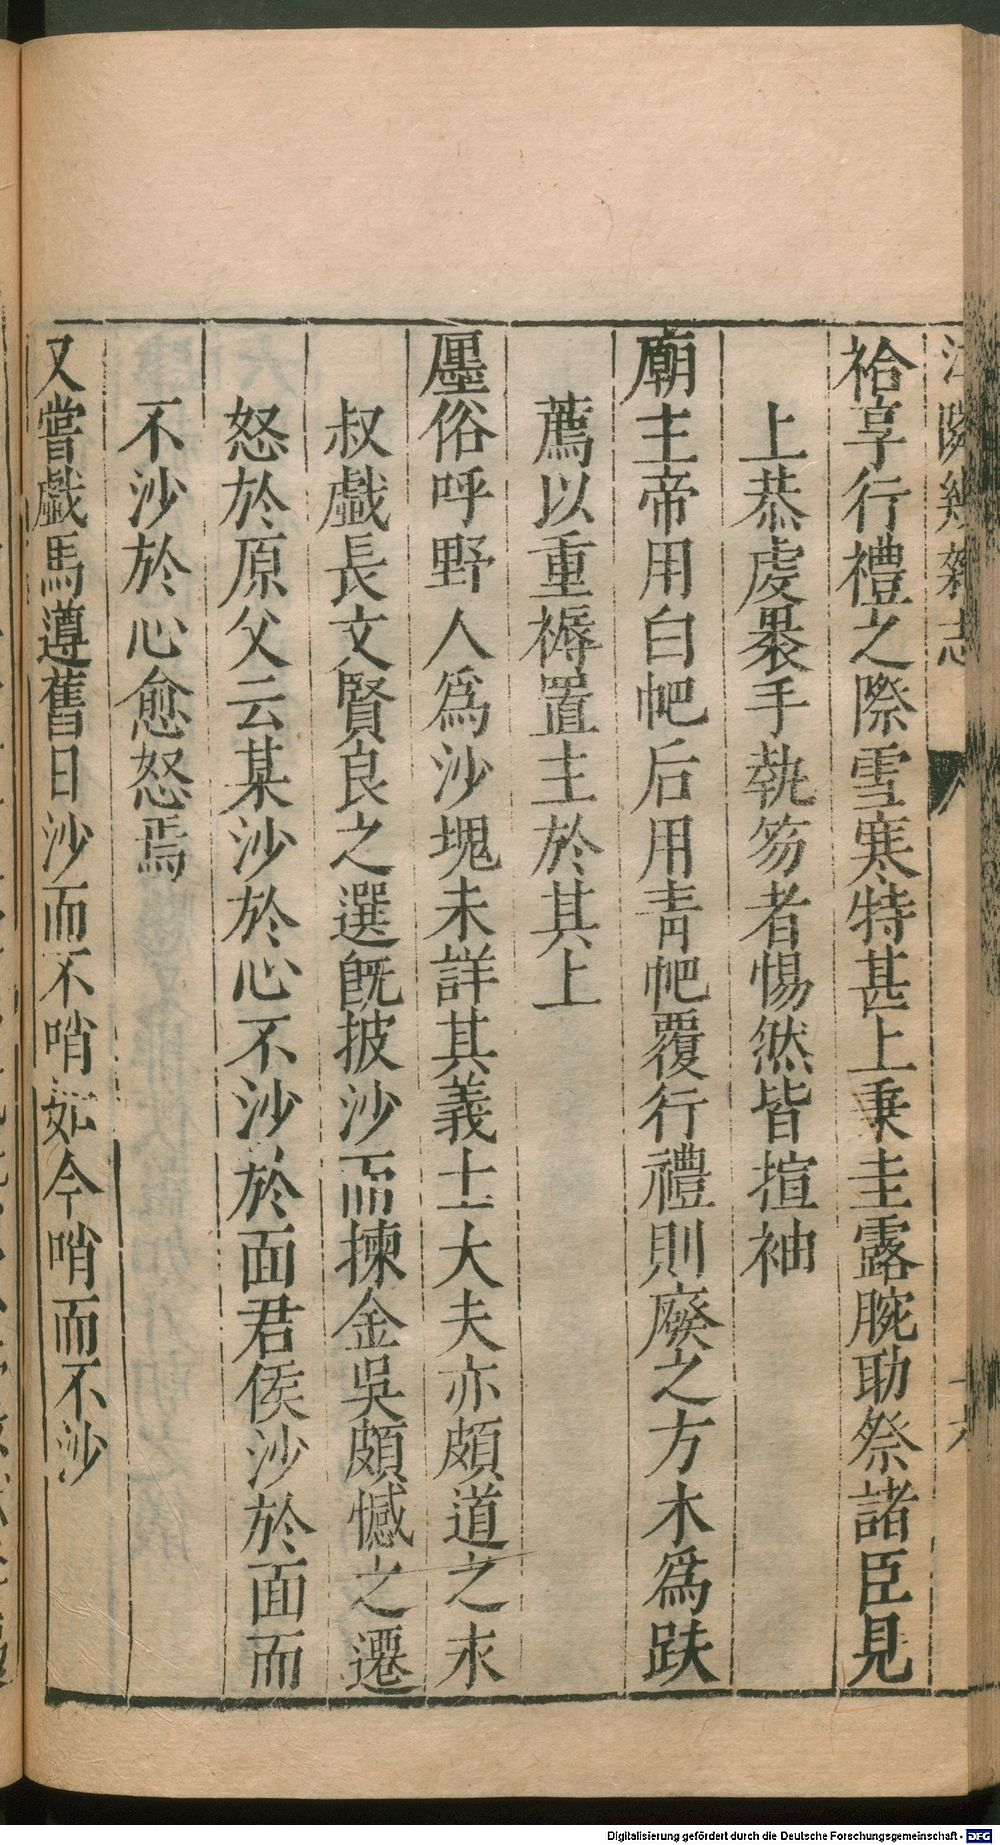 祫享行禮之際雪寒特甚上秉圭露腕助祭諸臣見
上恭虔褁手執笏者惕然皆揎袖
廟主帝用白帊后用青帊覆行禮則廢之方木為趺
薦以重褥置主於其上
俗呼野人為沙塊未詳其義士大夫亦頗道之永
叔戲長文賢良之選旣披沙而揀金吳頗憾之遷
怒於原父云某沙於心不沙於面君侯沙於面而
不沙於心愈怒焉
又嘗戲馬遵舊日沙而不哨如今哨而不沙
Digitalisierung gefördert durch die Deutsche Forschungsgemeinschaft - DFG